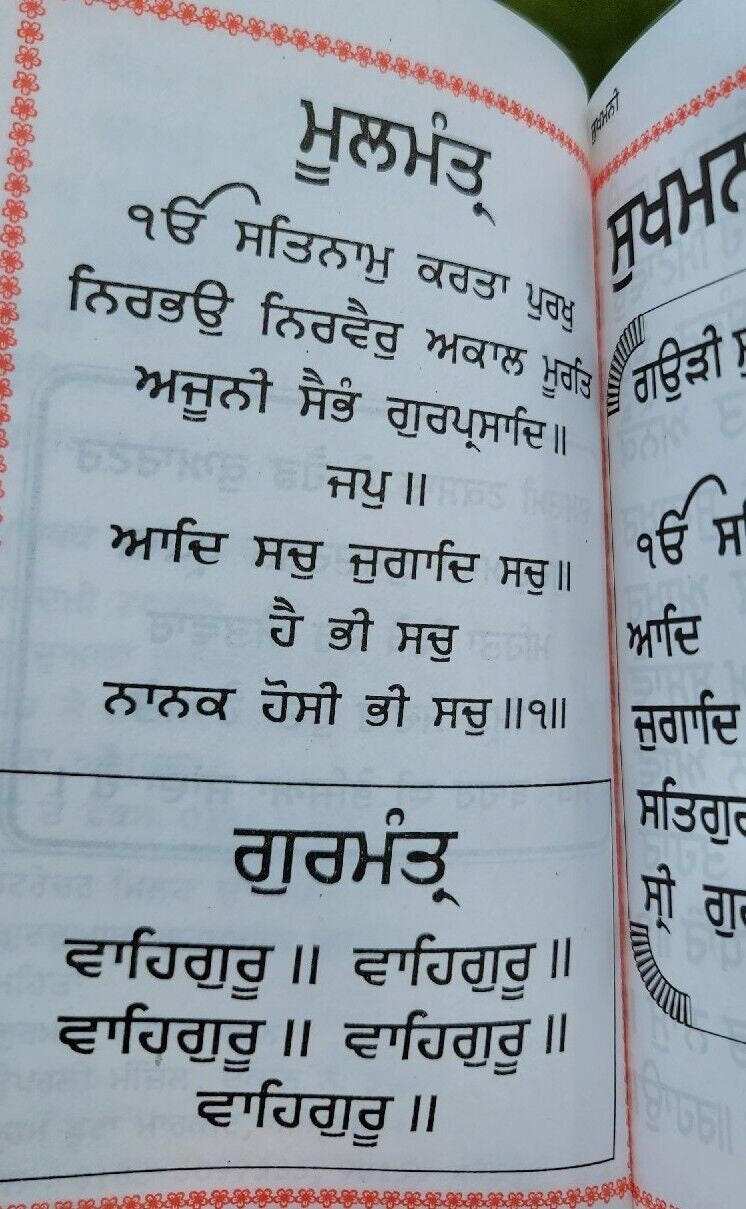 ਮੂਲਮੰਤ੍ਰ
ੴ ਸਤਿਨਾਮੁ ਕਰਤਾ ਪੁਰਖੁ
ਨਿਰਭਉ ਨਿਰਵੈਰੁ ਅਕਾਲ ਮੂਰਤਿ
ਅਜੂਨੀ ਸੈਭੰ ਗੁਰਪ੍ਰਸਾਦਿ॥
ਜਪੁ॥
ਆਦਿ ਸਚੁ ਜੁਗਾਦਿ ਸਚੁ॥
ਹੈ ਭੀ ਸਚੁ
ਨਾਨਕ ਹੋਸੀ ਭੀ ਸਚੁ॥੧॥
ਗੁਰਮੰਤ੍ਰ
ਵਾਹਿਗੁਰੂ॥ ਵਾਹਿਗੁਰੂ॥
ਵਾਹਿਗੁਰੂ॥ ਵਾਹਿਗੁਰੂ॥
ਵਾਹਿਗੁਰੂ॥
ਸੁਖਮਨੀ
ਗਉੜੀ
ੴ
ਆਦਿ
ਜੁਗਾਦਿ
ਸ੍ਰੀ